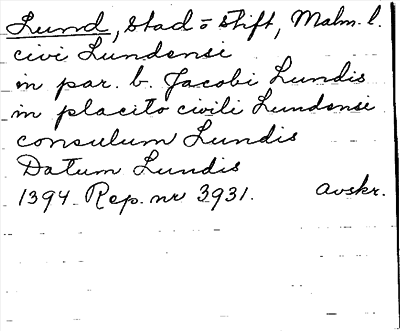 Lund, stad o stift, Malm. l.
civi Lundensi
in par. b. Jacobi Lundis
in placito civili Lundensi
consulum Lundis
Datum Lundis
1394 Rep. nr 3931. Avskr.